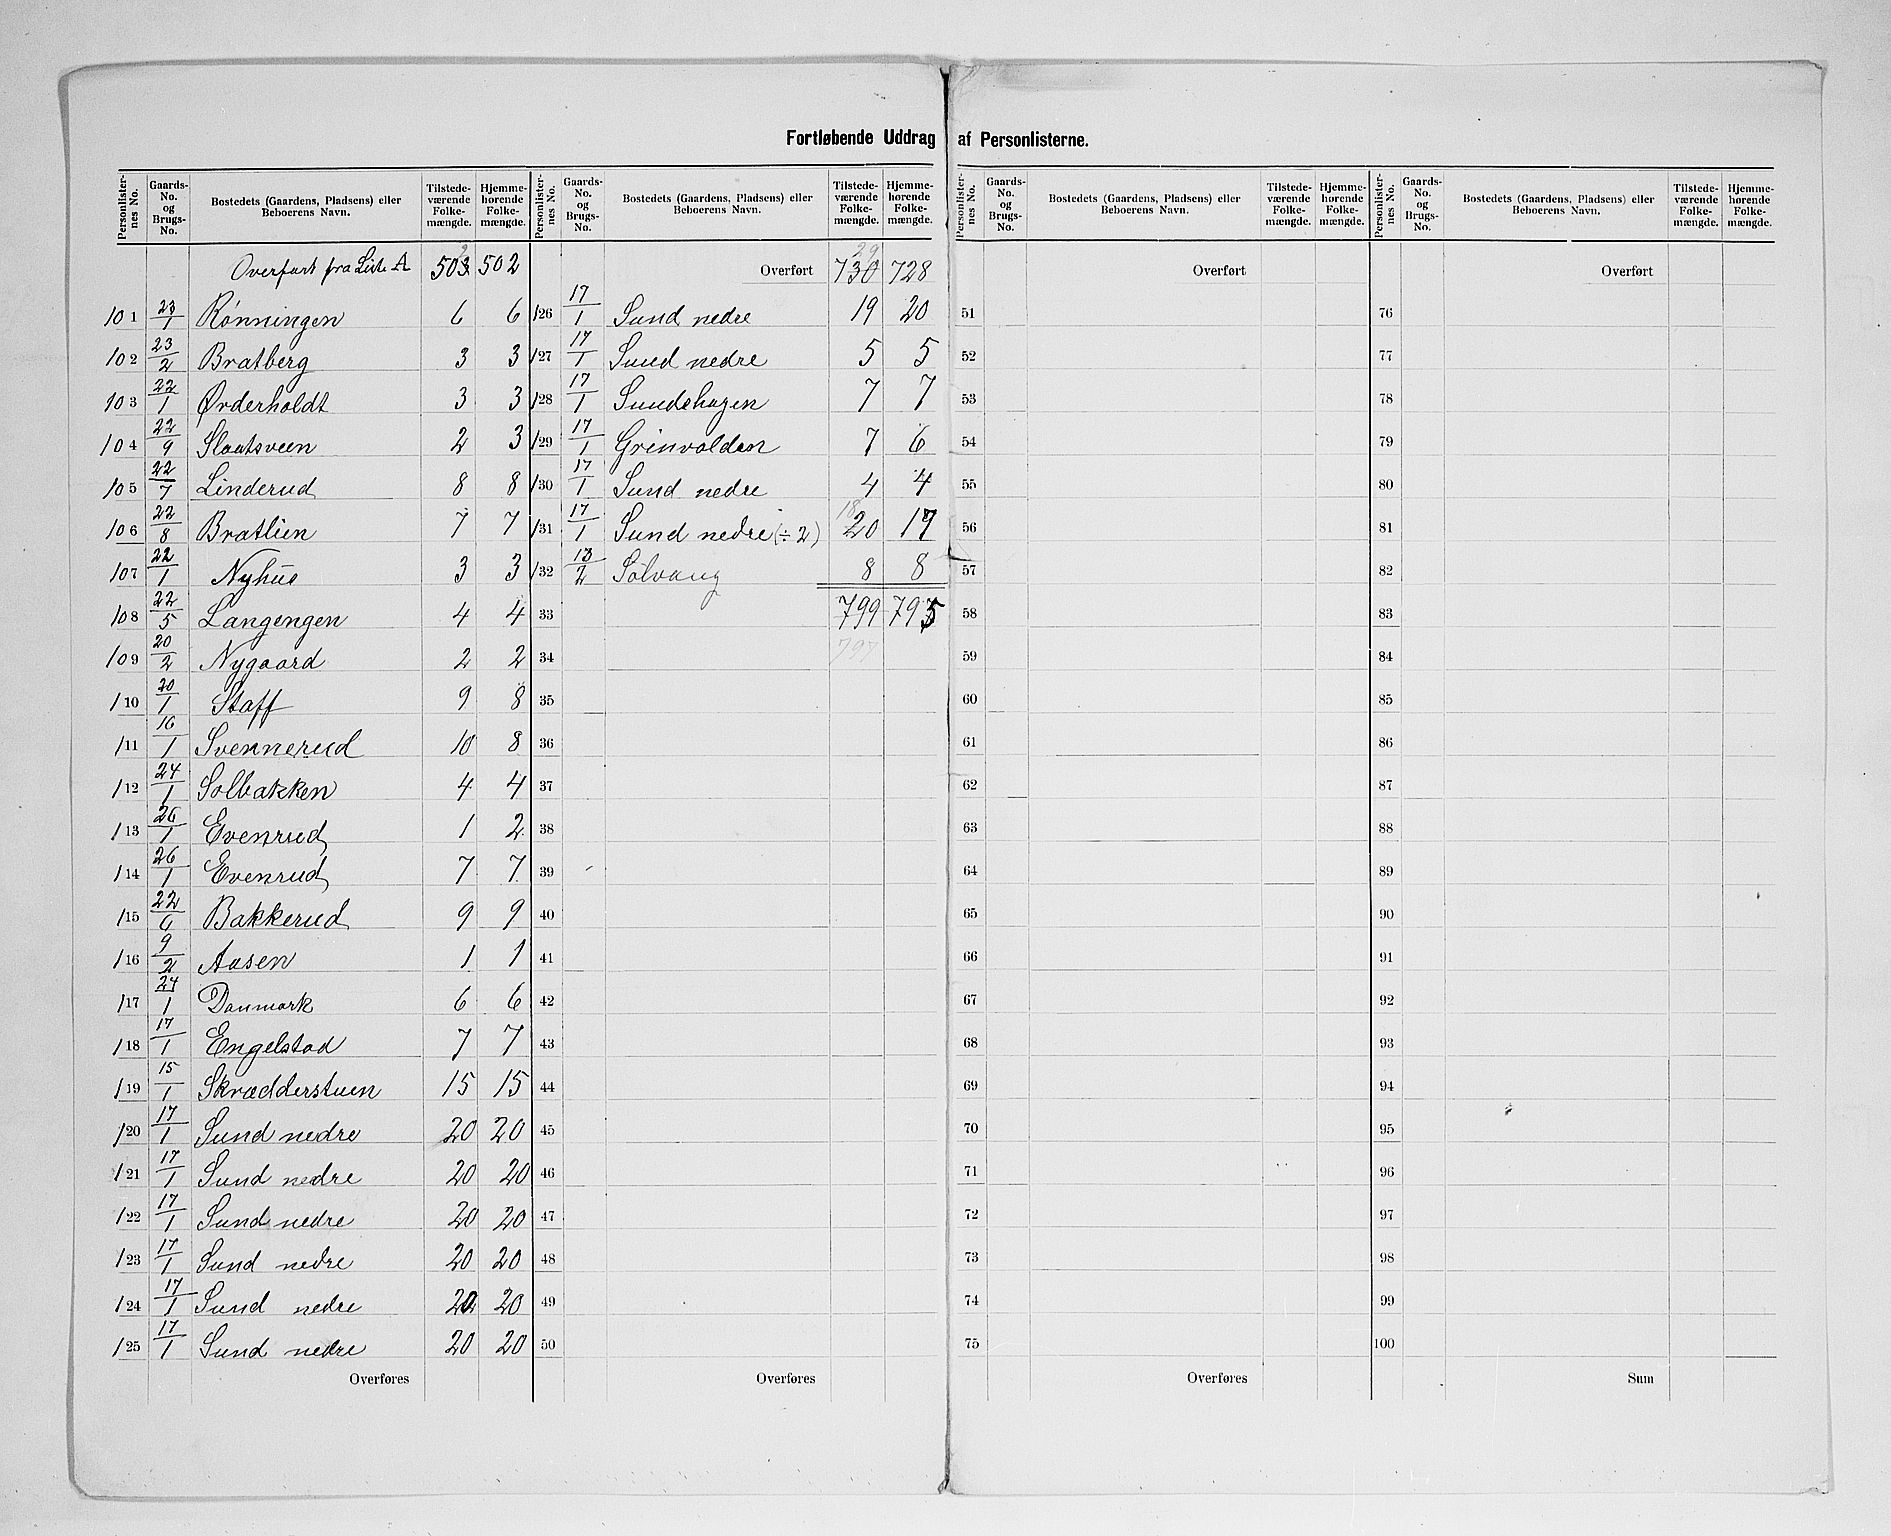 Fortløbende Uddrag af Personlisterne.
Personlister-nes No. | Gaards-No. og Brugs-No. | Bostedets (Gaardens, Pladsens) eller Beboerens Navn. | Tilstede-værende Folke-mængde. | Hjemme-hørende Folke-mængde.
Overført fra Liste A 503 502
101 23/1 Rønningen 6 6
102 23/2 Bratberg 3 3
103 22/1 Ørderholdt 3 3
104 22/9 Slaatsveen 2 3
105 22/7 Linderud 8 8
106 22/8 Bratlien 7 7
107 22/1 Nyhus 3 3
108 22/5 Langengen 4 4
109 20/2 Nygaard 2 2
110 20/1 Staff 9 8
111 16/1 Svennerud 10 8
112 24/1 Solbakken 4 4
113 26/1 Evenrud 1 2
114 26/1 Evenrud 7 7
115 22/6 Bakkerud 9 9
116 9/2 Aasen 1 1
117 24/1 Danmark 6 6
118 17/1 Engelstad 7 7
119 15/1 Skrædderstuen 15 15
120 17/1 Sund nedre 20 20
121 17/1 Sund nedre 20 20
122 17/1 Sund nedre 20 20
123 17/1 Sund nedre 20 20
124 17/1 Sund nedre 20 20
125 17/1 Sund nedre 20 20
Overføres
Personlister-nes No. | Gaards-No. og Brugs-No. | Bostedets (Gaardens, Pladsens) eller Beboerens Navn. | Tilstede-værende Folke-mængde. | Hjemme-hørende Folke-mængde.
29
Overført 730 728
126 17/1 Sund nedre 19 20
127 17/1 Sund nedre 5 5
128 17/1 Sundshagen 7 7
129 17/1 Grinvolden 7 6
130 17/1 Sund nedre 4 4
18
131 17/1 Sund nedre (÷2) 20 17
132 13/2 Solvang 8 8
33 799 795
34 797
35
36
37
38
39
40
41
42
43
44
45
46
47
48
49
50
Overføres
Personlister-nes No. | Gaards-No. og Brugs-No. | Bostedets (Gaardens, Pladsens) eller Beboerens Navn. | Tilstede-værende Folke-mængde. | Hjemme-hørende Folke-mængde.
Overført
51
52
53
54
55
56
57
58
59
60
61
62
63
64
65
66
67
68
69
70
71
72
73
74
75
Overføres
Personlister-nes No. | Gaards-No. og Brugs-No. | Bostedets (Gaardens, Pladsens) eller Beboerens Navn. | Tilstede-værende Folke-mængde. | Hjemme-hørende Folke-mængde.
Overført
76
77
78
79
80
81
82
83
84
85
86
87
88
89
90
91
92
93
94
95
96
97
98
99
100
Sum